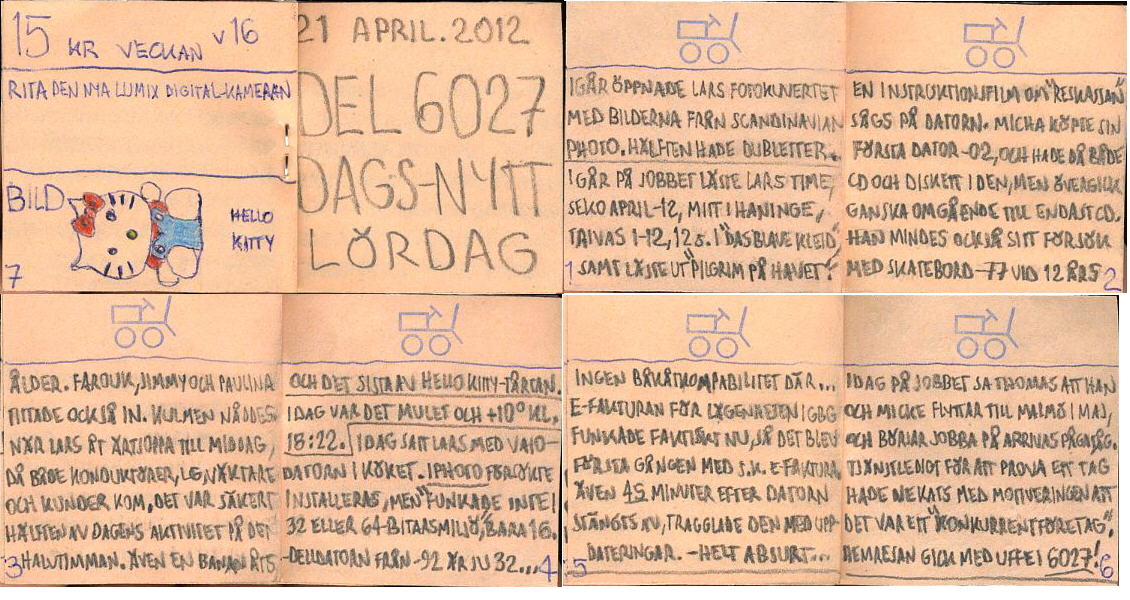 15 KR VECKAN V16
RITA DEN NYA LUMIX DIGITAL-KAMERAN
BILD
HELLO
KITTY
7
21 APRIL. 2012
DEL 6027
DAGS-NYTT
LÖRDAG
IGÅR ÖPPNADE LARS FOTOKUVERTET
MED BILDERNA FRÅN SCANDINAVIAN
PHOTO. HÄLFTEN HADE DUBLETTER.
IGÅR PÅ JOBBET LÄSTE LARS TIME,
SEKO APRIL-12, MITT I HANINGE,
TAIVAS 1-12, 12 s. I "DAS BLAVE KLEID",
1 SAMT LÄSTE UT "PILGRIM PÅ HAVET".
EN INSTRUKTIONSFILM OM "RESKASSAN"
SÅGS PÅ DATORN. MICHA KÖPTE SIN
FÖRSTA DATOR -02, OCH HADE DÅ BÅDE
CD OCH DISKETT I DEN, MEN ÖVERGICK
GANSKA OMGÅENDE TILL ENDAST CD.
HAN MINDES OCKSÅ SITT FÖRSÖK
MED SKATEBORD -77 VID 12 ÅRS 2
ÅLDER. FAROUK, JIMMY OCH PAULINA
TITTADE OCKSÅ IN. KULMEN NÅDDES
NÄR LARS ÅT ÄTSOPPA TILL MIDDAG,
DÅ BÅDE KONDUKTÖRER,
OCH KUNDER KOM, DET VAR SÄKERT
HÄLFTEN AV DAGENS AKTIVITET PÅ DET
3 HALVTIMMAN. ÄVEN EN BANAN ÅTS
OCH DET SISTA AV HELLO KITTY-TÅRTAN.
IDAG VAR DET MULET OCH +10° KL.
18:22. IDAG SATT LARS MED VAIO-
DATORN I KÖKET. IPHOTO FÖRSÖKTE
INSTALLERAS, MEN "FUNKADE INTE I
32 ELLER 64-BITARSMILJÖ", BARA 16.
-DELLDATORN FRÅN -92 ÄR JU 32... 4
INGEN BAKÅTKOMPABILITET DÄR...
E-FAKTURAN FÖR LÄGENHETEN I GBG
FUNKADE FAKTISKT NU, SÅ DET BLEV
FÖRSTA GÅNGEN MED S.K. E-FAKTURA.
ÄVEN 45 MINUTER EFTER DATORN
STÄNGTS AV, TRAGGLADE DEN MED UPP-
5 DATERINGAR. -HELT ABSURT...
IDAG PÅ JOBBET SA THOMAS ATT HAN
OCH MICKE FLYTTAR TILL MALMÖ I MAJ,
OCH BÖRJAR JOBBA PÅ ARRIVAS PÅGATÅG.
TJÄNSTLEDIGT FÖR ATT PROVA ETT TAG
HADE NEKATS MED MOTIVERINGEN ATT
DET VAR ETT "KONKURRENTFÖRETAG".
HEMRESAN GICK MED UFFE I 6027! 6